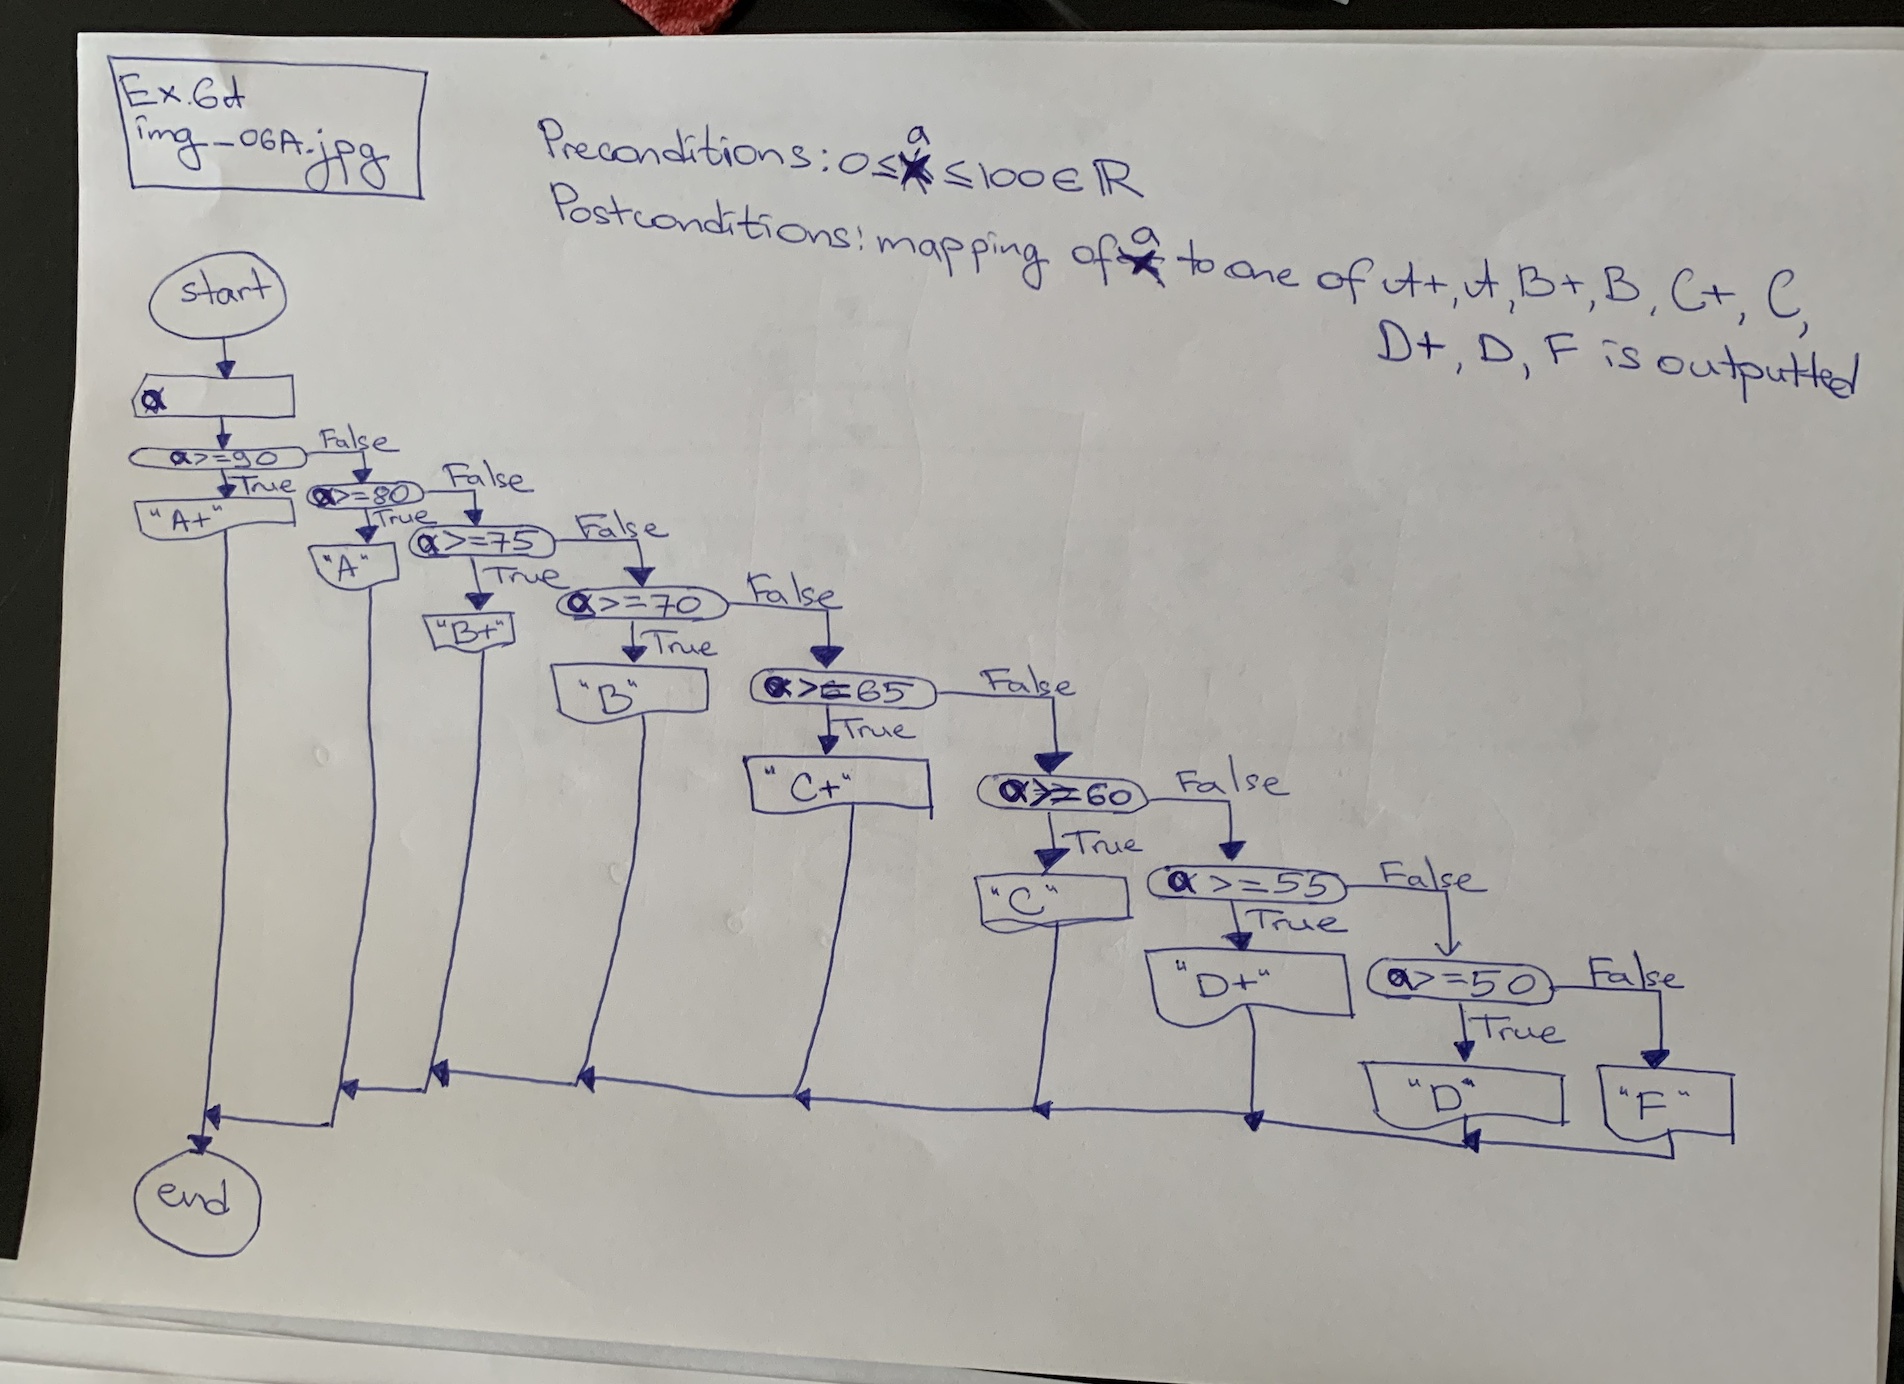 Ex.6A
img_06A.jpg
Preconditions: 0≤a≤100∈ℝ
Postconditions: mapping of a to one of A+, A, B+, B, C+, C,
D+, D, F is outputted
start
a
a>=90
False
True
"A+"
a>=80
False
True
"A"
a>=75
False
True
"B+"
a>=70
False
True
"B"
a>=65
False
True
"C+"
a>=60
False
True
"C"
a>=55
False
True
"D+"
a>=50
False
True
"D"
"F"
end